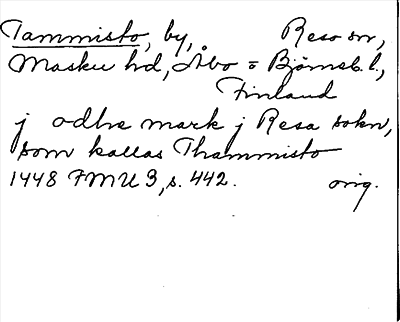 Tammisto, by, Reso sn,
Masku hd, Åbo = Björneb. l.,
Finland
j odhe mark j Resa sokn,
som kallas Thammisto
1448 FMU 3, s. 442. orig.